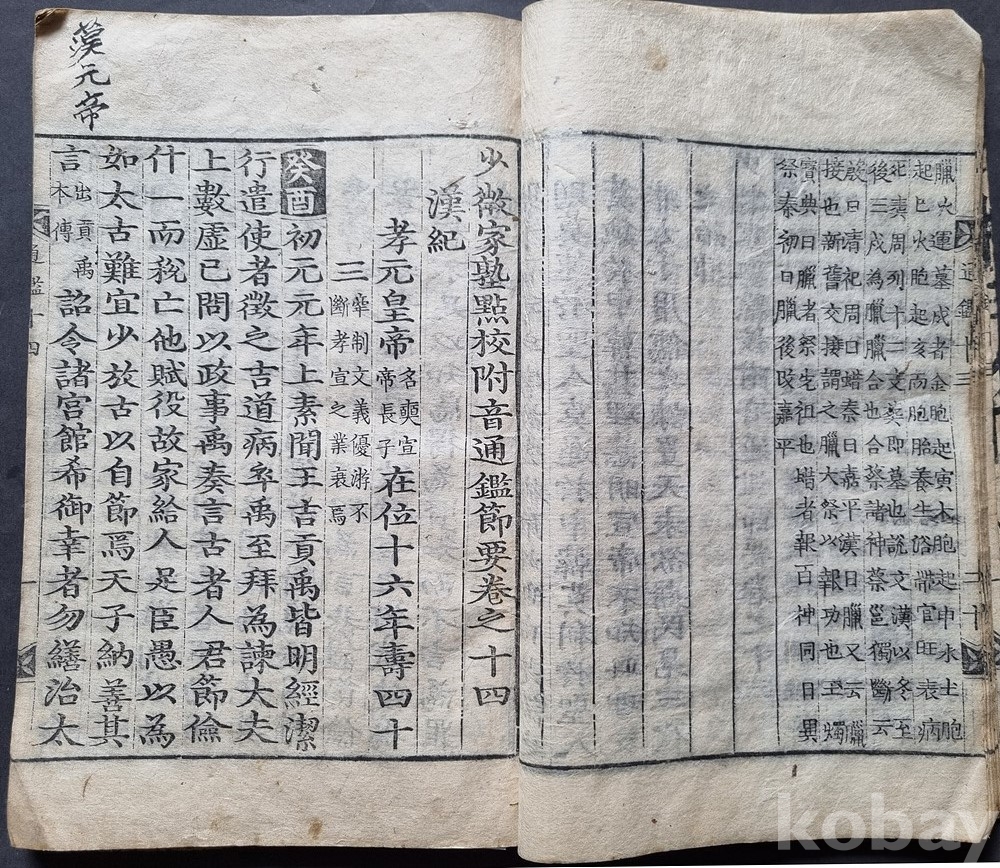 臘火運墓戌者金胞起寅木胞起申水土胞
起巳火胞起亥而胞胎養生浴帶官旺衰病
死葬周列十二支葬即墓也說文漢以冬至
後三戌為臘臘合也合祭諸神蔡邕獨斷云
殷曰清祀周曰蜡秦曰嘉平漢曰臘又云臘
接也新舊交接謂之臘大祭以報功也王燭
寶典曰臘者祭先祖也蜡者報百神同日異
祭秦初曰臘後改嘉平
通鑑十三
二十
少微家塾點校附音通鑑節要卷之十四
漢紀
孝元皇帝名奭宣帝長子在位十六年壽四十
三牽制文義優游不斷孝宣之業衰焉
癸酉初元元年上素聞王吉貢禹皆明經潔
行遣使者徵之吉道病卒禹至拜為諫大夫
上數虛已問以政事禹奏言古者人君節儉
什一而稅亡他賦役故家給人足臣愚以為
如太古難宜少放古以自節焉天子納善其
言出貢禹本傳詔令諸宮館希御幸者勿繕治太
通鑑十四
一
漢元帝
kobay